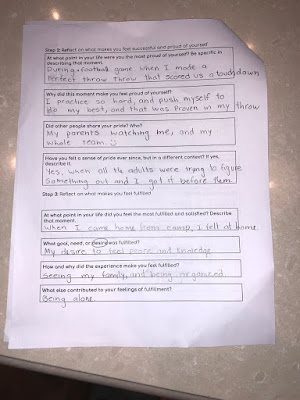 Step 2: Reflect on what makes you feel successful and proud of yourself
At what point in your life were you the most proud of yourself? Be specific in
describing that moment.
During a football game when I made a
Perfect throw throw that scored us a touchdown
Why did this moment make you feel proud of yourself?
I practice so hard, and push myself to
do my best, and that was proven in my throw
Did other people share your pride? Who?
My parents watching me, and my
whole team. :)
Have you felt a sense of pride ever since, but in a different context? If yes,
describe it.
Yes, when all the adults were trying to figure
Something out and I got it before them
Step 3: Reflect on what makes you feel fulfilled
At what point in your life did you feel the most fulfilled and satisfied? Describe
that moment.
When I came home from camp, I felt at home
What goal, need, or desire was fulfilled?
My desire to feel peace and
How and why did the experience make you feel fulfilled?
Seeing my family, and being organized
What else contributed to your feelings of fulfillment?
Being alone.